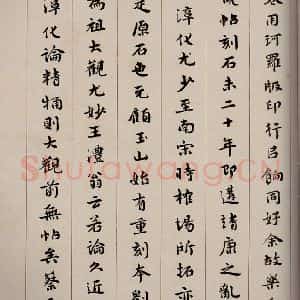 用珂羅版印行㠯餉同好余故樂
帖刻石未二十年即遭靖康之亂
淳化尤少至南宋時榷場所拓亦
是原石也元顧玉山始有重刻本劉
為祖大觀尤妙王澧翁云若論久近
淳化論精則大觀前無帖矣蔡
Shufawang.CN